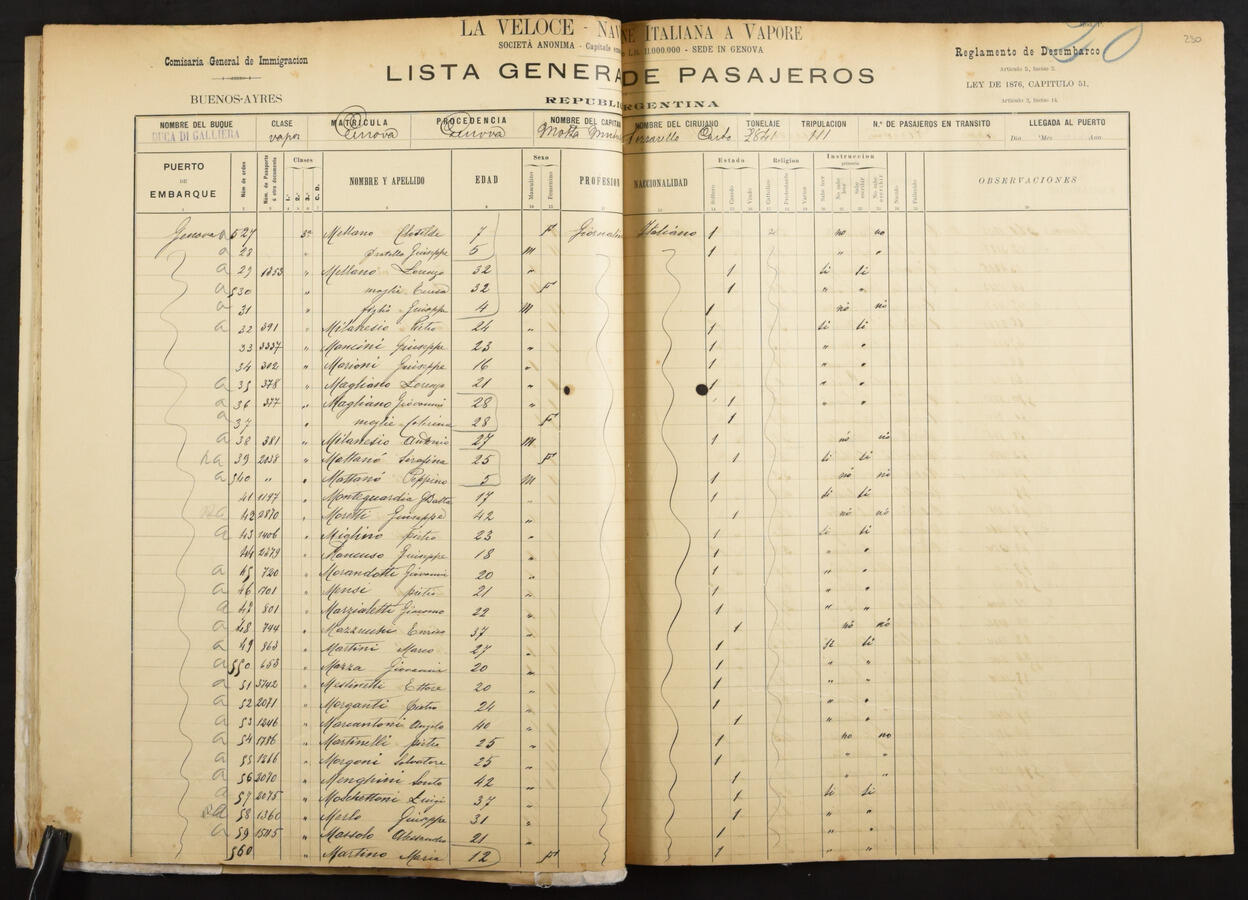 LA VELOCE - NAV NE ITALIANA A VAPORE
SOCIETÀ ANONIMA - Capitale 11.000.000 - SEDE IN GENOVA
250
Comisaria General de Immigracion
BUENOS-AYRES
LISTA GENERA DE PASAJEROS
REPUBLIC RGENTINA
Reglamento de Desembarco
Articulo 5, Inciso 2.
LEY DE 1876, CAPITULO 51,
Articulo 2, Inciso 14.
NOMBRE DEL BUQUE CLASE MATRÍCULA PROCEDENCIA NOMBRE DEL CAPITA NOMBRE DEL CIRUJANO TONELAJE TRIPULACION N.º DE PASAJEROS EN TRANSITO LLEGADA AL PUERTO
DUCA DI GALLIERA vapor Genova Genova 111 Dia Mes Ano
PUERTO DE EMBARQUE Núm de orden Clases 1.ª 2.ª 3.ª C. D. NOMBRE Y APELLIDO EDAD Sexo Masculino Femenino PROFESION NACCIONALIDAD Estado Soltero Casado Viudo Religion Catolico Protestante Varias Instruccion OBSERVACIONES
Genova a 527 3ª Mellano 7 F Giornali Italiano 1 no no
a 28 " fratello Giuseppe 5 M 1 " "
a 29 1353 " Mellano Lorenzo 32 " 1 si si
a 530 " moglie 32 F 1 " "
a 31 " figlio Giuseppe 4 M 1 nò nò
a 32 391 " Milanesio Pietro 24 " 1 si si
33 3337 " Mancini Giuseppe 23 " 1 " "
34 302 " Marioni Giuseppe 16 " 1 " "
a 35 378 " Magliano Lorenzo 21 " 1 " "
a 36 377 " Magliano Giovanni 28 " 1 " "
a 37 " moglie Caterina 28 F 1
a 38 381 " Milanesio Antonio 27 M 1 nò nò
39 2038 " Mattanò Serafina 25 F 1 si si
a 540 " " Mattanò Peppino 5 M 1 nò nò
41 1197 " Monteguardia 17 " 1 si si
42 2870 " Moretti Giuseppe 42 " 1 nò nò
a 43 1406 " Miglino pietro 23 " 1 si si
44 2279 " Mancuso Giuseppe 18 " 1 " "
a 45 720 " Morandotti Giovanni 20 " 1 " "
a 46 1701 " Mensi pietro 21 " 1 " "
a 47 801 " Marzialetti Giacomo 22 " 1 " "
a 48 744 " Mazzucchi Enrico 37 " 1 nò nò
a 49 863 " Martini Marco 27 " 1 si si
a 550 653 " Mazza Giovanni 20 " 1 " "
a 51 3742 " Mestinelli Ettore 20 " 1 " "
a 52 2071 " Morganti Pietro 24 " 1 " "
a 53 1246 " Marcantoni Angelo 40 " 1 " "
a 54 1786 " Martinelli pietro 25 " 1 no no
a 55 1266 " Morgoni Salvatore 25 " 1 " "
a 56 2070 " Menghini Santo 42 " 1 " "
a 57 2075 " Moschettoni Luigi 37 " 1 si si
58 1360 " Merlo Giuseppe 31 " 1 " "
a 59 " Massolo Alessandro 21 " 1 " "
560 " Martino Maria 12 F 1 " "